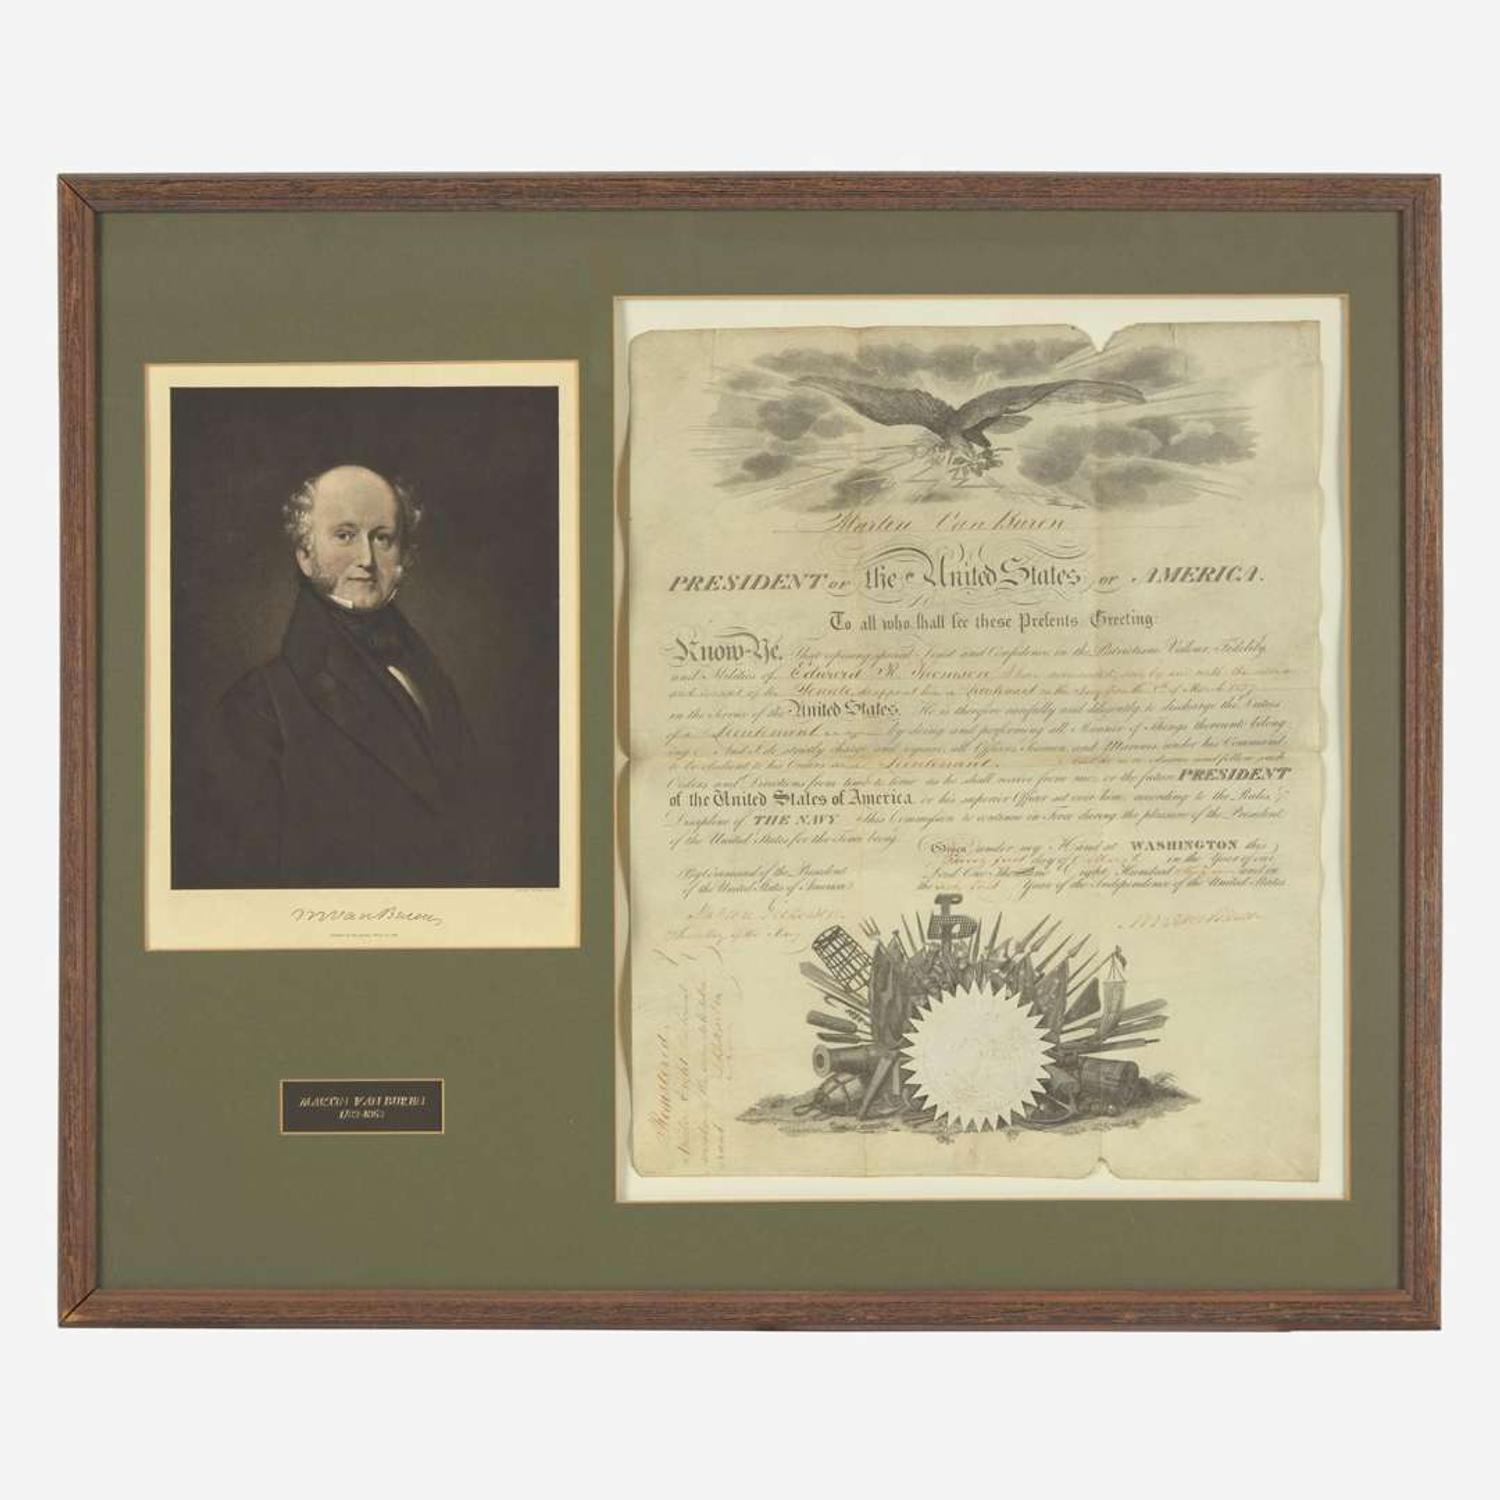 MVanBuren
MARTIN VAN BUREN
1782-1862
Martin Van Buren
PRESIDENT OF the United States OF AMERICA.
To all who shall see these Presents Greeting:
Know Ye, That reposing special Trust and Confidence in the Patriotism, Valour, Fidelity,
and Abilities of Edward R. Thomson I have nominated, and by and with the advice
and consent of the Senate, do appoint him a Lieutenant in the Navy from the of March 1837
in the Service of the United States. He is therefore carefully and diligently to discharge the Duties
of a Lieutenant by doing and performing all Manner of Things thereunto belong-
ing. And I do strictly charge and require all Officers, Seamen and Marines under his Command
to be obedient to his Orders as a Lieutenant. And he is to observe and follow such
Orders and Directions from time to time as he shall receive from me, or the future PRESIDENT
of the United States of America or his superior Officer set over him, according to the Rules &
Discipline of THE NAVY This Commission to continue in Force during the pleasure of the President
of the United States for the Time being.
Given under my Hand at WASHINGTON this
day of in the Year of our
Lord One Thousand Eight Hundred and in
the Year of the Independence of the United States.
By Command of the President
of the United States of America
Mahlon Dickerson
Secretary of the Navy
MVanBuren
Registered